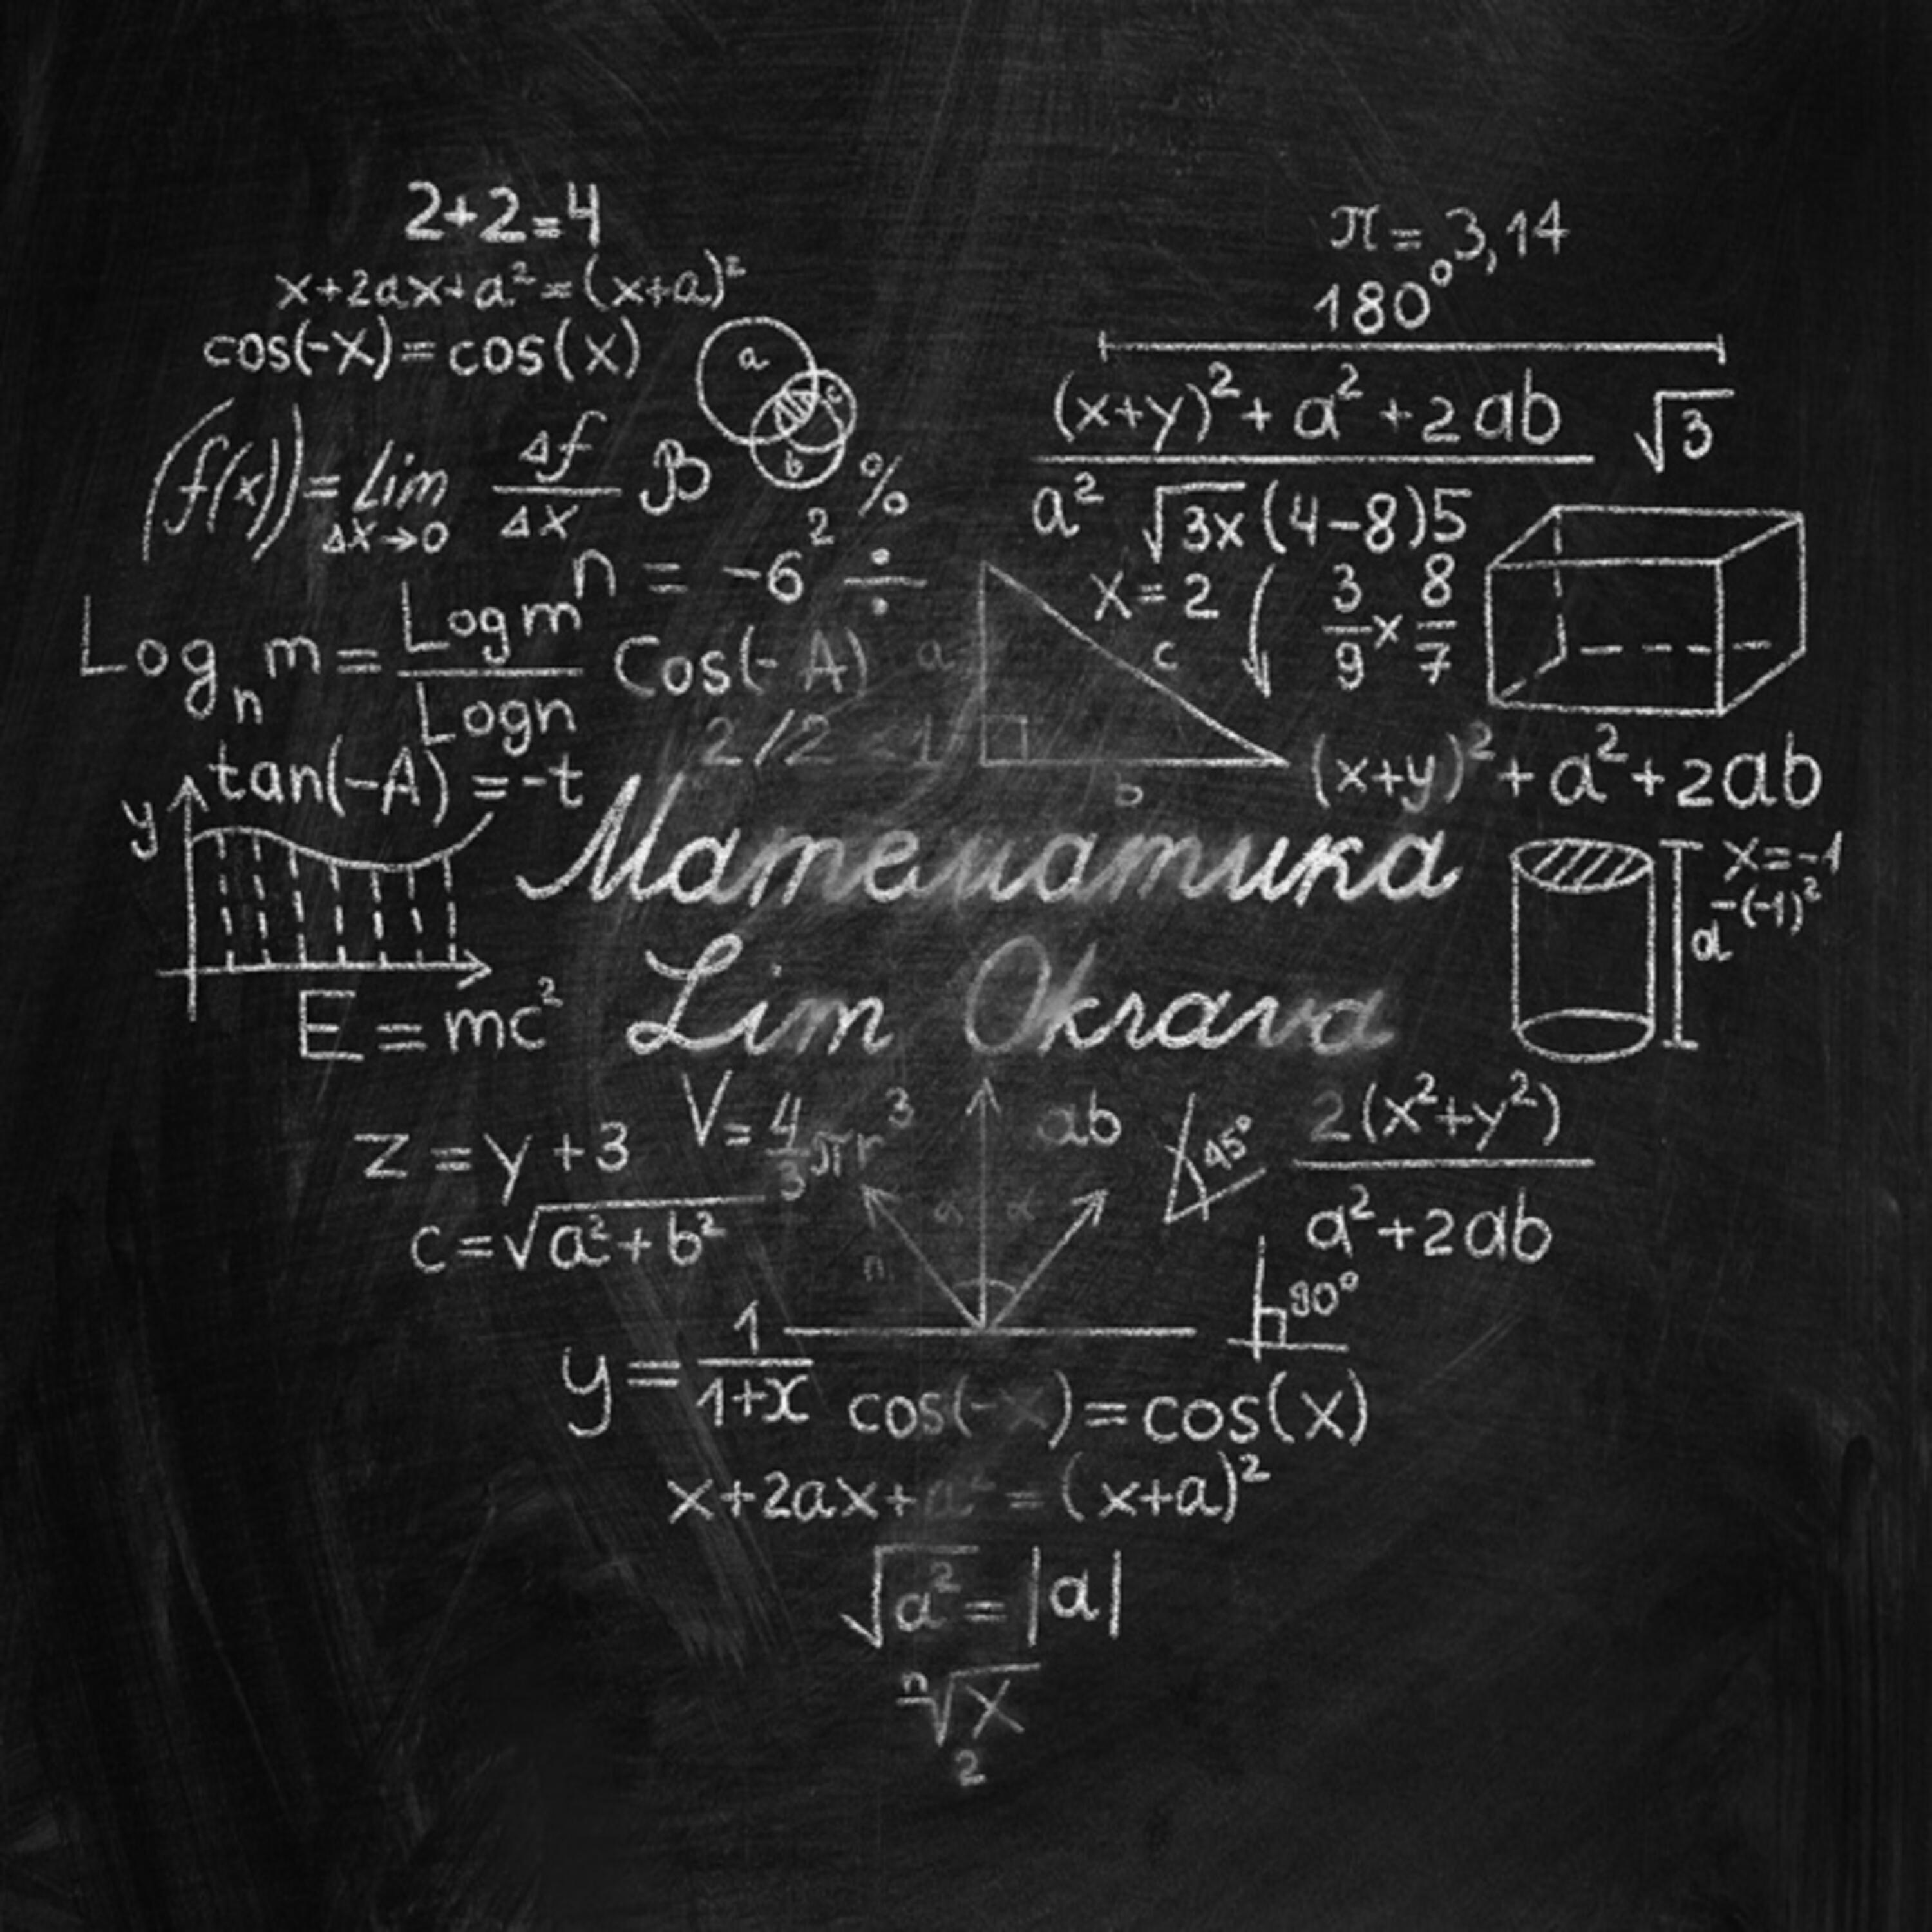 2+2=4
x+2ax+a²=(x+a)²
cos(-x)=cos(x)
a
c
b
(f(x))=lim Δx→0 Δf/Δx
B
%
n = -6² ÷
Log_n m = Log m / Log n
Cos(-A)
2/2
tan(-A) = -t
y
E = mc²
π = 3,14
180°
(x+y)² + a² + 2ab
√3
a² √3x (4-8)5
x=2
3/9 × 8/7
a
c
b
(x+y)² + a² + 2ab
x=-1
a^-(-1)²
Математика
Lim Okrava
z = y + 3
V = 4/3 πr³
ab
45°
2(x²+y²)
a²+2ab
c=√a²+b²
n
α
90°
y = 1/1+x
cos(-x)=cos(x)
x+2ax+a²=(x+a)²
√a² = |a|
ⁿ√x
2